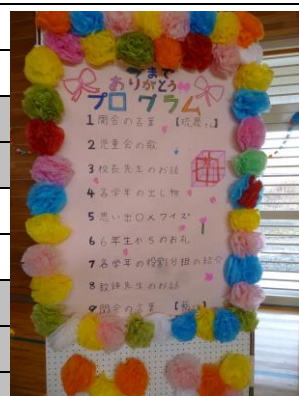 今まで
ありがとう
プログラム
1 開会の言葉
2 児童会の歌
3 校長先生のお話
4 各学年の出し物
5 思い出〇×クイズ
6 6年生からのお礼
7 各学年の役割分担の紹介
8 教頭先生のお話
9 閉会の言葉